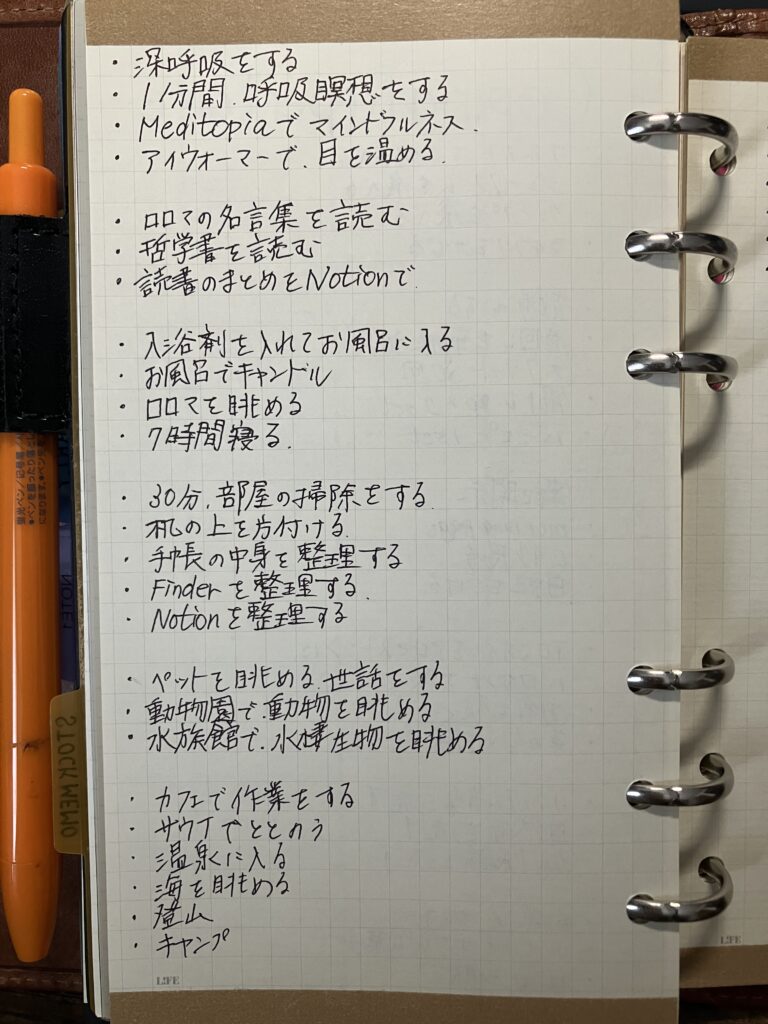 ・深呼吸をする
・1分間、呼吸瞑想をする
・Meditopiaでマインドフルネス.
・アイウォーマーで、目を温める.
・ロロマの名言集を読む
・哲学書を読む
・読書のまとめをNotionで
・入浴剤を入れてお風呂に入る
・お風呂でキャンドル
・ロロマを眺める
・7時間寝る.
・30分、部屋の掃除をする.
・机の上を片付ける.
・手帳の中身を整理する
・Finderを整理する.
・Notionを整理する
・ペットを眺める、世話をする
・動物園で、動物を眺める
・水族館で、水棲生物を眺める
・カフェで作業をする
・サウナでととのう
・温泉に入る
・海を眺める
・登山
・キャンプ
L!FE
L!FE
STOCK MEMO
NOTE1
蛍光ペン/記号